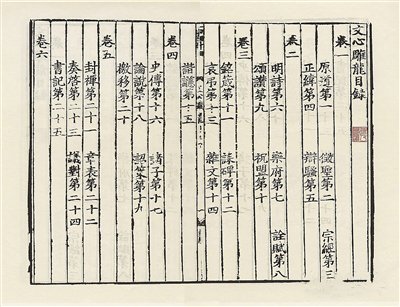 文心雕龍目録
卷一
原道第一 徵聖第二 宗經第三
正緯第四 辯騷第五
卷二
明詩第六 樂府第七 詮賦第八
頌讚第九 祝明第十
卷三
銘箴第十一 誄碑第十二
哀弔第十三 雜文第十四
諧讔第十五
卷四
史傳第十六 諸子第十七
論說第十八 詔策第十九
檄移第二十
卷五
封禪第二十一 章表第二十二
奏啓第二十三 議對第二十四
書記第二十五
卷六